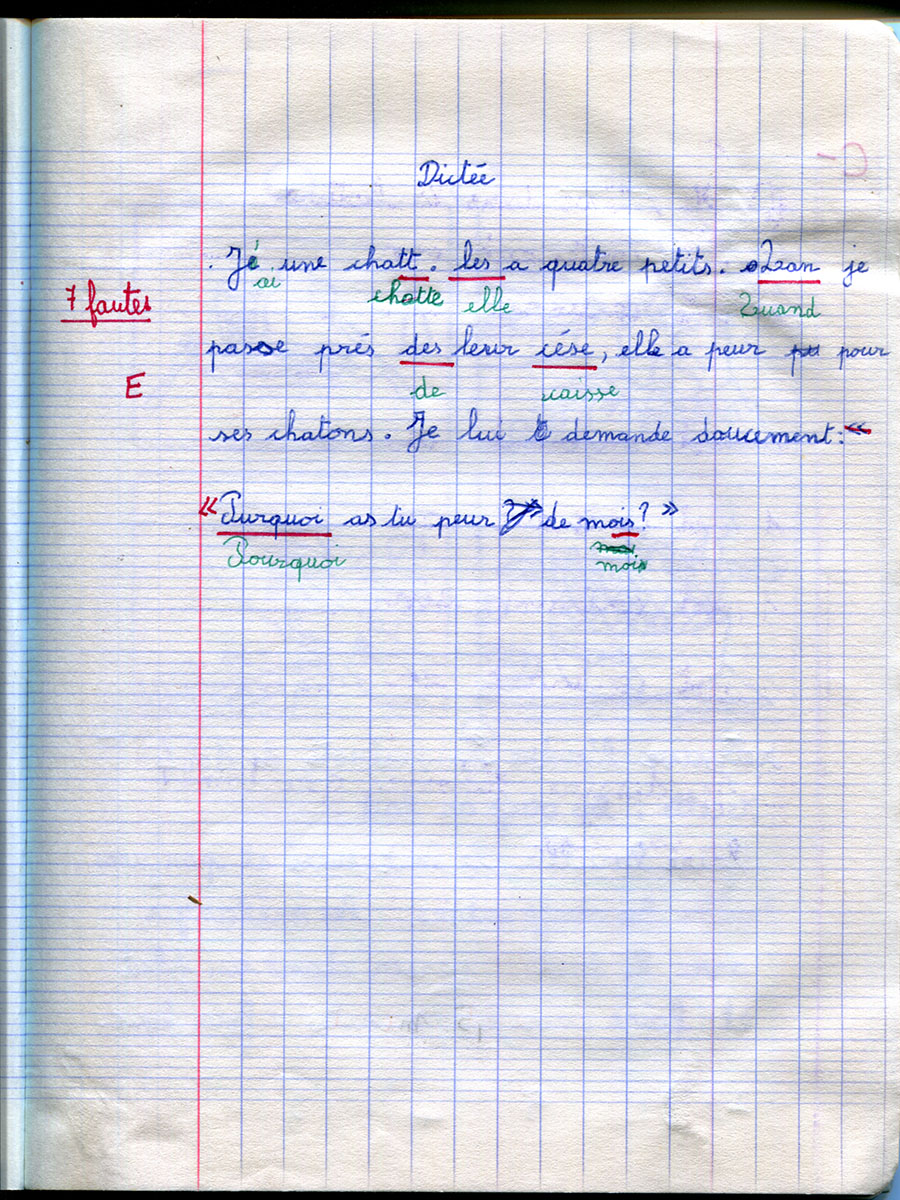 C-
Dictée
Jé une chatt. les a quatre petits. Qan je
ai chatte elle Quand
7 fautes
passe prés des leur cése, elle a peur pour
de caisse
E
ses chatons. Je lui demande doucement: «
« Purquoi as tu peur de mois? »
Pourquoi mois